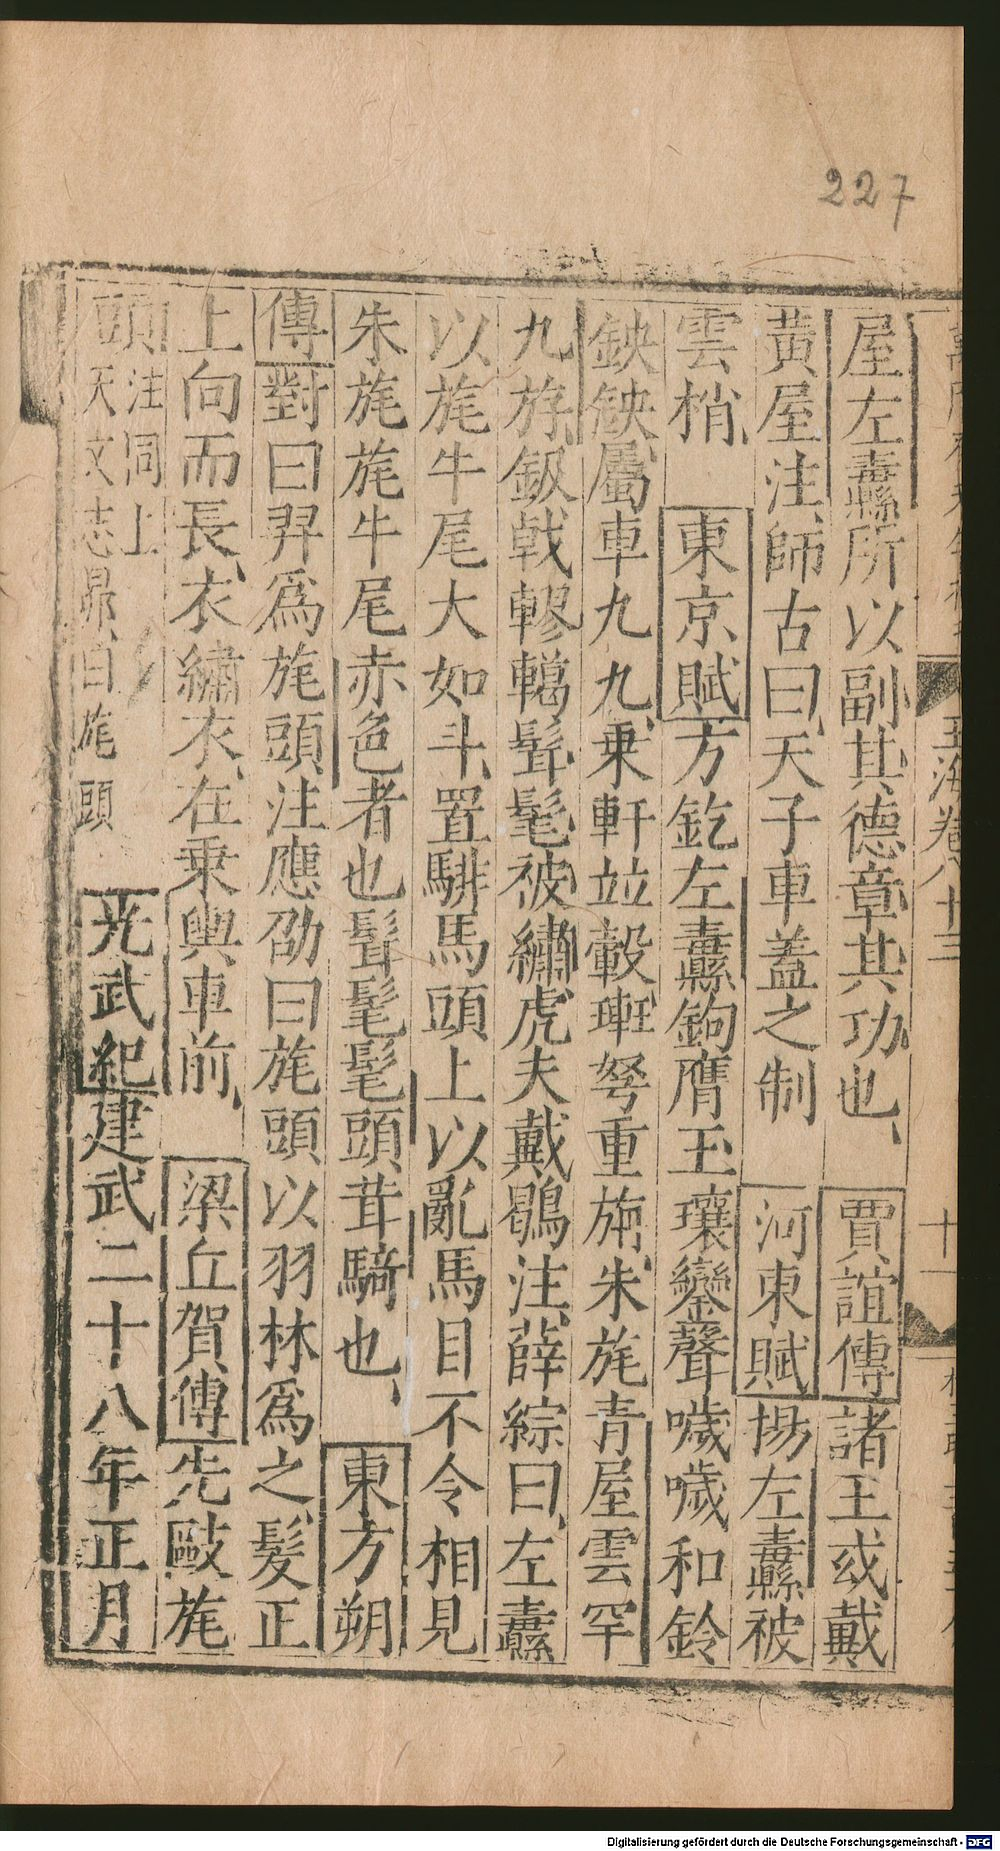 227
玉海卷八十三
十一
屋左纛所以副其德章其功也、賈誼傳諸王或戴
黃屋注師古曰、天子車蓋之制 河東賦揚左纛被
雲梢 東京賦方釳左纛鉤膺玉瓖鑾聲噦噦和鈴
鉠鉠、屬車九九、乘軒並轂、㻏弩重旃、朱旄青屋雲罕
九斿、鈒戟轇轕髶髦被繡、虎夫戴鶡注、薛綜曰、左纛
以旄牛尾大如斗、置騑馬頭上以亂馬目不令相見
朱旄旄牛尾赤色者也髶髦髦頭茸騎也、 東方朔
傳對曰羿爲旄頭、注應劭曰旄頭以羽林爲之、髮正
上向而長、衣繡衣、在乘輿車前、 梁丘賀傳先敺旄
頭注同上天文志昴、曰旄頭 光武紀建武二十八年正月
Digitalisierung gefördert durch die Deutsche Forschungsgemeinschaft - DFG